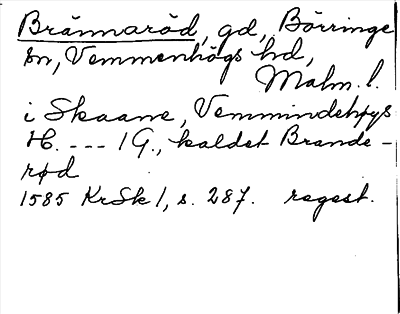 Brännaröd, gd, Börringe
sn, Vemmenhögs hd,
Malm. l.
i Skaane, Vemmindehøgs
H. --- 1 G., kaldet Brande-
rød
1585 KrSk 1, s. 287. regest.